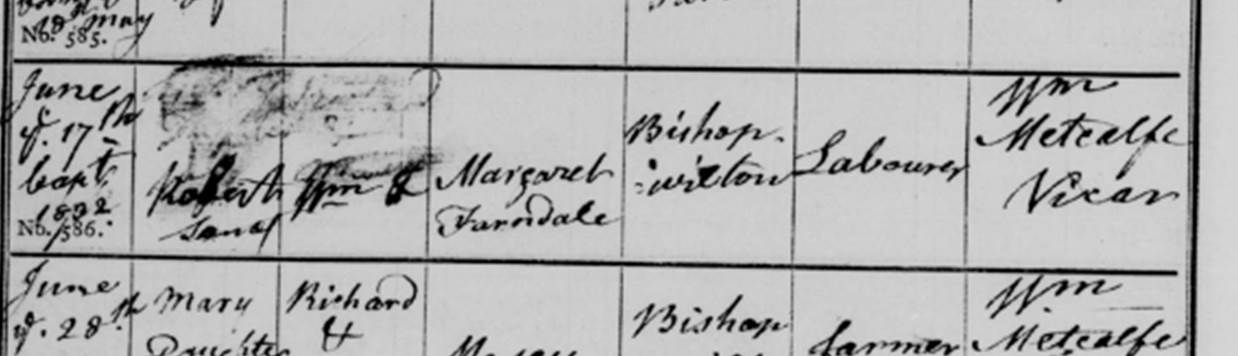 May
No. 585.
June
ye. 17th
bapt
1832
No. 586.
Robert
Son of
Wm &
Margaret
Farndale
Bishop
wilton
Labourer
Wm
Metcalfe
Vicar
June
ye. 28th
Mary
Daughter
Richard
&
Bishop
farmer
Wm
Metcalfe